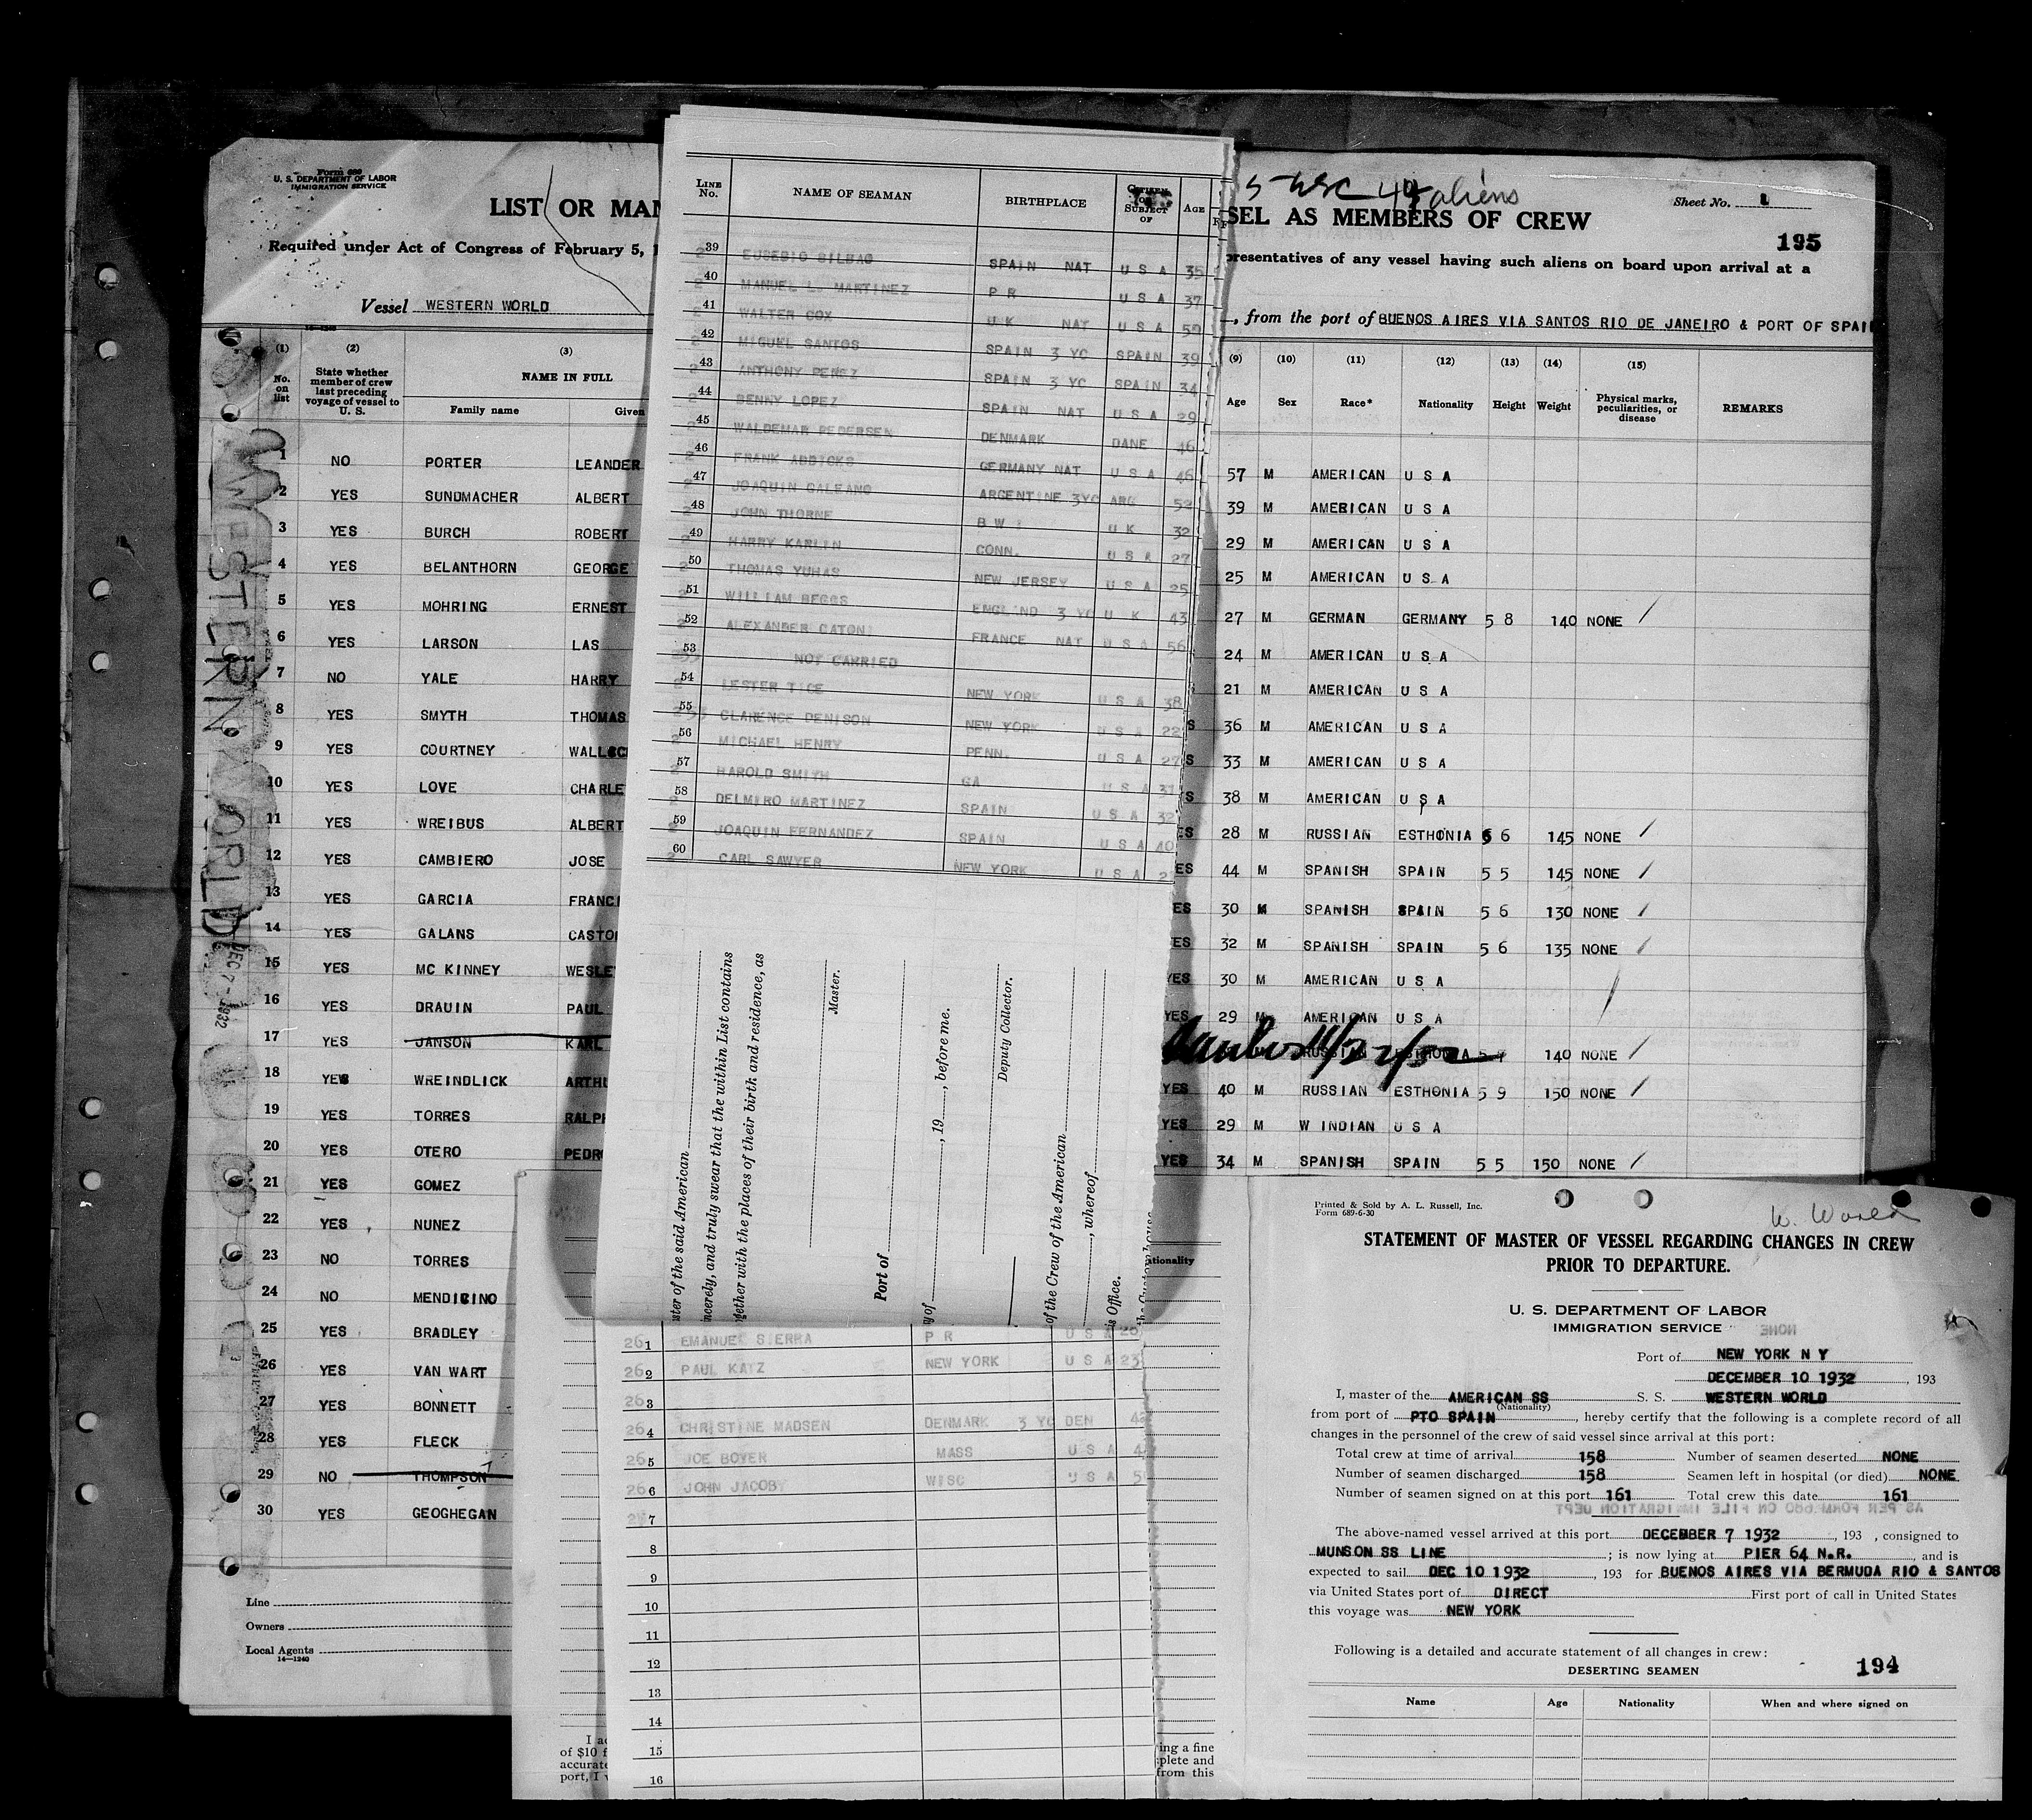 Form 680
U. S. DEPARTMENT OF LABOR
IMMIGRATION SERVICE
LIST OR MAN
Required under Act of Congress of February 5, 1
Vessel WESTERN WORLD
(1) (2) (3)
No. on list
State whether member of crew last preceding voyage of vessel to U. S.
NAME IN FULL
Family name Given
1 NO PORTER LEANDER
2 YES SUNDMACHER ALBERT
3 YES BURCH ROBERT
4 YES BELANTHORN GEORGE
5 YES MOHRING ERNEST
6 YES LARSON LAS
7 NO YALE HARRY
8 YES SMYTH THOMAS
9 YES COURTNEY WALLACE
10 YES LOVE CHARLE
11 YES WREIBUS ALBERT
12 YES CAMBIERO JOSE
13 YES GARCIA FRANCI
14 YES GALANS CASTO
15 YES MC KINNEY WESLE
16 YES DRAUIN PAUL
17 YES JANSON KARL
18 YES WREINDLICK ARTHU
19 YES TORRES RALPH
20 YES OTERO PEDRO
21 YES GOMEZ
22 YES NUNEZ
23 NO TORRES
24 NO MENDICINO
25 YES BRADLEY
26 YES VAN WART
27 YES BONNETT
28 YES FLECK
29 NO THOMPSON
30 YES GEOGHEGAN
Line
Owners
Local Agents
14—1240
WESTERN WORLD
DEC 7 - 1932
LINE No. NAME OF SEAMAN BIRTHPLACE CITIZEN OR SUBJECT OF AGE
39 EUSEBIO BILBAO SPAIN NAT U S A 35
40 MANUEL L. MARTINEZ P R U S A 37
41 WALTER COX U K NAT U S A 59
42 MIGUEL SANTOS SPAIN 3 YC SPAIN 39
43 ANTHONY PEREZ SPAIN 3 YC SPAIN 34
44 BENNY LOPEZ SPAIN NAT U S A 29
45 WALDEMAR PEDERSEN DENMARK DANE 46
46 FRANK ADDICKS GERMANY NAT U S A 46
47 JOAQUIN GALEANO ARGENTINE 3YC ARG 52
48 JOHN THORNE B W I U K 32
49 HARRY KARLIN CONN. U S A 27
50 THOMAS YUHAS NEW JERSEY U S A 25
51 WILLIAM BEGGS ENGLAND 3 YC U K 43
52 ALEXANDER CATON FRANCE NAT U S A 56
53 NOT CARRIED
54 LESTER TICE NEW YORK U S A 38
55 CLARENCE DENISON NEW YORK U S A 22
56 MICHAEL HENRY PENN. U S A 27
57 HAROLD SMITH GA U S A 31
58 DELMIRO MARTINEZ SPAIN U S A 32
59 JOAQUIN FERNANDEZ SPAIN U S A 40
60 CARL SAWYER NEW YORK U S A 2
ster of the said American
ncerely, and truly swear that the within List contains
gether with the places of their birth and residence, as
Master.
Port of
y of , 19 , before me.
Deputy Collector.
of the Crew of the American
, whereof
is Office.
261 EMANUEL SIERRA P R U S A 26
262 PAUL KATZ NEW YORK U S A 23
263
264 CHRISTINE MADSEN DENMARK 3 YC DEN 4
265 JOE BOYER MASS U S A 4
266 JOHN JACOBY WISC U S A 5
7
8
9
10
11
12
13
14
15
16
tionality
I ac
of $10 f
accurate
port, I v
ing a fine
plete and
from this
5 49 aliens
Sheet No. 1
SEL AS MEMBERS OF CREW
195
presentatives of any vessel having such aliens on board upon arrival at a
, from the port of BUENOS AIRES VIA SANTOS RIO DE JANEIRO & PORT OF SPAI
(9) (10) (11) (12) (13) (14) (15)
Age Sex Race* Nationality Height Weight Physical marks, peculiarities, or disease REMARKS
57 M AMERICAN U S A
39 M AMERICAN U S A
29 M AMERICAN U S A
25 M AMERICAN U S A
27 M GERMAN GERMANY 5 8 140 NONE /
24 M AMERICAN U S A
21 M AMERICAN U S A
S 36 M AMERICAN U S A
S 33 M AMERICAN U S A
S 38 M AMERICAN U S A
ES 28 M RUSSIAN ESTHONIA 5 6 145 NONE /
ES 44 M SPANISH SPAIN 5 5 145 NONE /
ES 30 M SPANISH SPAIN 5 6 130 NONE /
ES 32 M SPANISH SPAIN 5 6 135 NONE /
YES 30 M AMERICAN U S A
YES 29 M AMERICAN U S A
RUSSIAN ESTHONIA 5 140 NONE /
YES 40 M RUSSIAN ESTHONIA 5 9 150 NONE /
YES 29 M W INDIAN U S A
YES 34 M SPANISH SPAIN 5 5 150 NONE /
Printed & Sold by A. L. Russell, Inc.
Form 689-6-30
W. World
STATEMENT OF MASTER OF VESSEL REGARDING CHANGES IN CREW
PRIOR TO DEPARTURE.
U. S. DEPARTMENT OF LABOR
IMMIGRATION SERVICE
NONE
Port of NEW YORK N Y
DECEMBER 10 1932 , 193
I, master of the AMERICAN SS S. S. WESTERN WORLD
(Nationality)
from port of PTO SPAIN , hereby certify that the following is a complete record of all
changes in the personnel of the crew of said vessel since arrival at this port:
Total crew at time of arrival 158 Number of seamen deserted NONE
Number of seamen discharged 158 Seamen left in hospital (or died) NONE
Number of seamen signed on at this port 161 Total crew this date 161
AS PER FORM 680 ON FILE IMMIGRATION DEPT
The above-named vessel arrived at this port DECEMBER 7 1932 , 193 , consigned to
MUNSON SS LINE ; is now lying at PIER 64 N.R. , and is
expected to sail DEC 10 1932 , 193 for BUENOS AIRES VIA BERMUDA RIO & SANTOS
via United States port of DIRECT First port of call in United States
this voyage was NEW YORK
Following is a detailed and accurate statement of all changes in crew:
DESERTING SEAMEN
194
Name Age Nationality When and where signed on